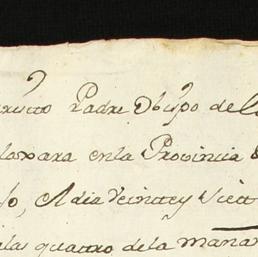 Padre Obispo de
laxara en la Provincia
A dia Veintey Siet
las quattro de la maña